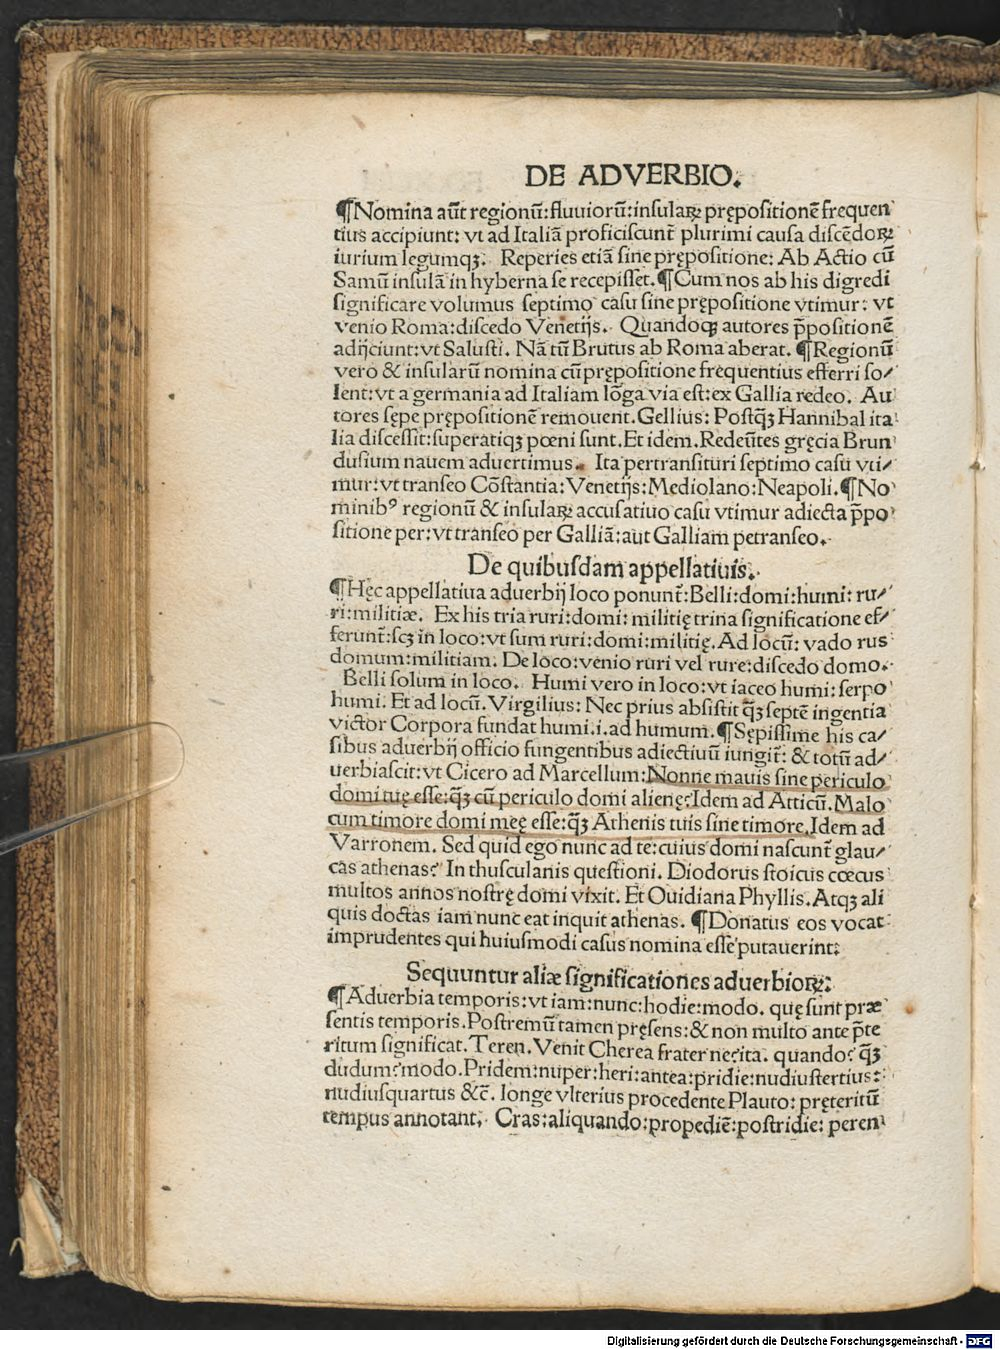 DE ADVERBIO.
¶Nomina aut̃ regionũ: fluuiorũ: insulaꝝ prępositionẽ frequen
tius accipiunt: vt ad Italiã proficiscunt̃ plurimi causa discẽdoꝝ
iurium legumqꝫ. Reperies etiã sine prępositione: Ab Actio cũ
Samũ insulã in hyberna se recepisset. ¶Cum nos ab his digredi
significare volumus septimo casu sine prępositione vtimur: vt
venio Roma: discedo Venetijs. Quandoqꝫ autores p̃positionẽ
adijciunt: vt Salusti. Nã tũ Brutus ab Roma aberat. ¶Regionũ
vero & insularũ nomina cũ prępositione frequentius efferri so⸗
lent: vt a germania ad Italiam lõga via est: ex Gallia redeo. Au
tores sępe prępositionẽ remouent. Gellius: Postqꝫ Hannibal ita
lia discessit: superatiqꝫ pœni sunt. Et idem. Redeũtes gręcia Brun
dusium nauem aduertimus. Ita pertransituri septimo casu vti⸗
mur: vt transeo Cõstantia: Venetijs: Mediolano: Neapoli. ¶No
minibꝰ regionũ & insulaꝝ accusatiuo casu vtimur adiecta p̃po
sitione per: vt transeo per Galliã: aut Galliam petranseo.
De quibusdam appellatiuis.
¶Hęc appellatiua aduerbij loco ponunt̃: Belli: domi: humi: ru⸗
ri: militiæ. Ex his tria ruri: domi: militię trina significatione ef⸗
ferunt̃: scꝫ in loco: vt sum ruri: domi: militię. Ad locũ: vado rus
domum: militiam. De loco: venio ruri vel rure: discedo domo.
Belli solum in loco. Humi vero in loco: vt iaceo humi: serpo
humi. Et ad locũ. Virgilius: Nec prius absistit qꝫ septẽ ingentia
victor Corpora fundat humi. i. ad humum. ¶Sępissime his ca⸗
sibus aduerbij officio fungentibus adiectiuũ iungit̃: & totũ ad⸗
uerbiascit: vt Cicero ad Marcellum: Nonne mauis sine periculo
domi tuę esse: qꝫ cũ periculo domi alienę? Idem ad Atticũ. Malo
cum timore domi meę esse: qꝫ Athenis tuis sine timore. Idem ad
Varronem. Sed quid ego nunc ad te: cuius domi nascunt̃ glau⸗
cas athenas? In thusculanis questioni. Diodorus stoicus cœcus
multos annos nostrę domi vixit. Et Ouidiana Phyllis. Atqꝫ ali
quis doctas iam nunc eat inquit athenas. ¶Donatus eos vocat
imprudentes qui huiusmodi casus nomina esse putauerint:
Sequuntur aliæ significationes aduerbioꝝ:
¶Aduerbia temporis: vt iam: nunc: hodie: modo. quę sunt præ
sentis temporis. Postremũ tamen pręsens: & non multo ante p̃te
ritum significat. Teren. Venit Cherea frater ne? ita. quando? qꝫ
dudum? modo. Pridem: nuper: heri: antea: pridie: nudiustertius:
nudiusquartus &c̃. longe vlterius procedente Plauto: pręteritũ
tempus annotant. Cras: aliquando: propediẽ: postridie: peren
Digitalisierung gefördert durch die Deutsche Forschungsgemeinschaft - DFG